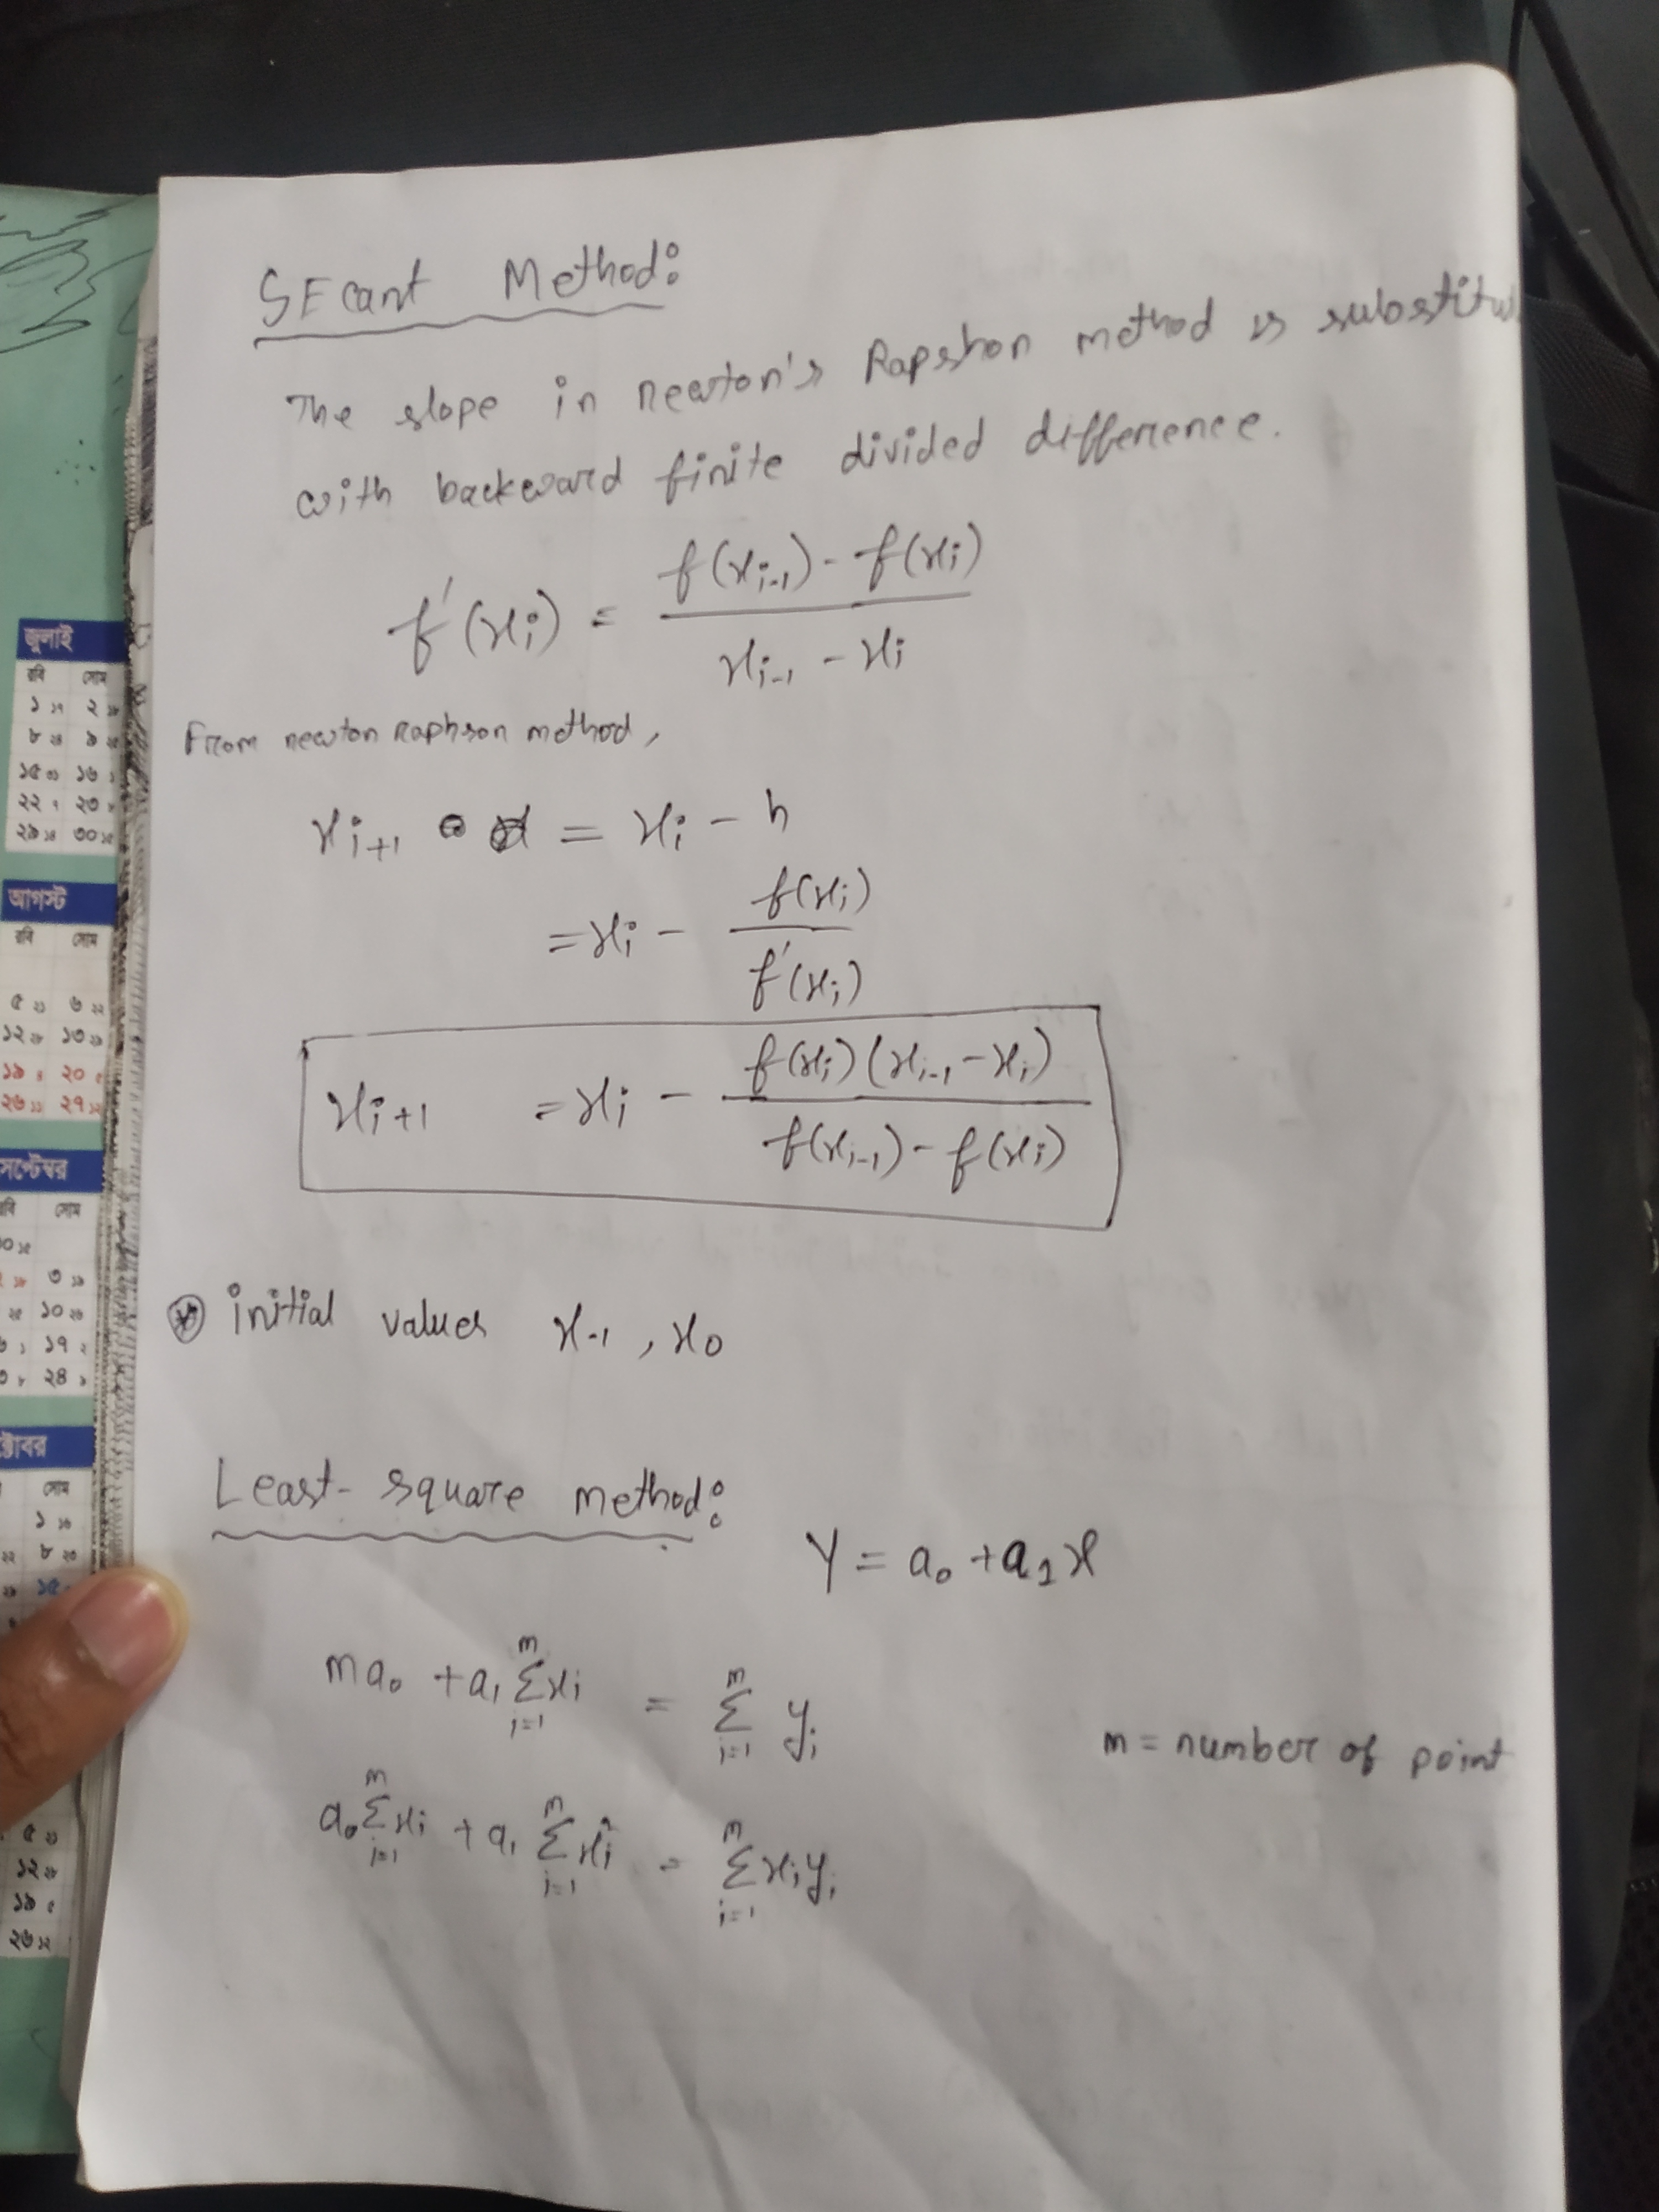 SEcant Method:
The slope in newton's Rapshon method is substitu
with backward finite divided difference.
f'(xi) = f(xi-1) - f(xi) / xi-1 - xi
From newton Raphson method,
xi+1 = xi - h
= xi - f(xi) / f'(xi)
xi+1 = xi - f(xi)(xi-1 - xi) / f(xi-1) - f(xi)
initial values x-1, x0
Least-square method:
Y = a0 + a1x
ma0 + a1 Σ(i=1 to m) xi = Σ(i=1 to m) yi
m = number of point
a0 Σ(i=1 to m) xi + a1 Σ(i=1 to m) xi² = Σ(i=1 to m) xiyi
জুলাই
রবি সোম
১ ২
৮ ৯
১৫ ১৬
২২ ২৩
২৯ ৩০
আগস্ট
রবি সোম
৫ ৬
১২ ১৩
১৯ ২০
২৬ ২৭
সেপ্টেম্বর
সোম
৩
১০
১৭
২৪
ক্টোবর
সোম
১
৮
১৫
৫
১২
১৯
২৬